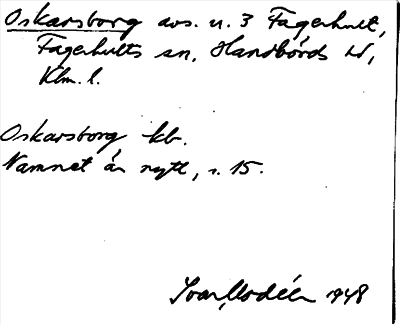 Oskarsborg avs. u. 3 Fagerhult,
Fagerhults sn, Handbörds hd,
Klm. l.
Oskarsborg kb.
Namnet är nytt, s. 15.
Ivar Modéer 1948